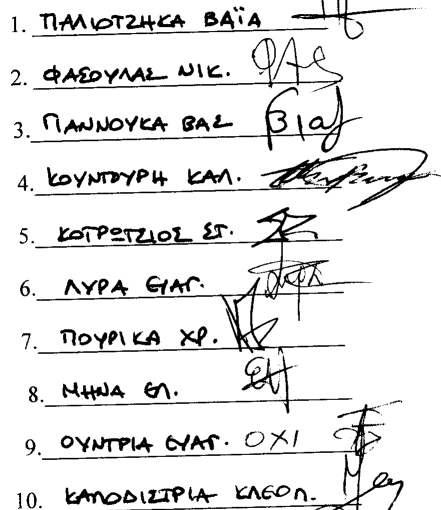 1. ΠΑΛΙΟΤΖΗΚΑ ΒΑΪΑ
2. ΦΑΣΟΥΛΑΣ ΝΙΚ.
3. ΓΙΑΝΝΟΥΚΑ ΒΑΣ
4. ΚΟΥΝΤΟΥΡΗ ΚΑΛ.
5. ΚΟΤΡΩΤΣΙΟΣ ΣΤ.
6. ΛΥΡΑ ΕΥΑΓ.
7. ΠΟΥΡΙΚΑ ΧΡ.
8. ΜΗΝΑ ΕΛ.
9. ΟΥΝΤΡΙΑ ΕΥΑΓ. ΟΧΙ
10. ΚΑΠΟΔΙΣΤΡΙΑ ΚΛΕΟΠ.